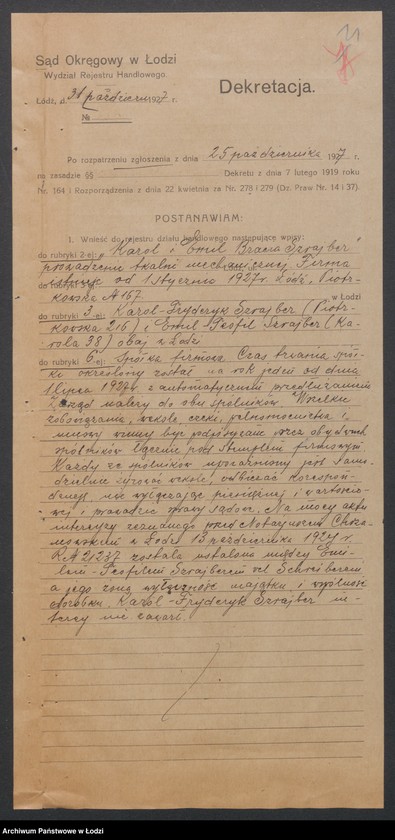 11
Sąd Okręgowy w Łodzi
Wydział Rejestru Handlowego.
Łódź, d. 31 październ 1927 r.
№
Dekretacja.
Po rozpatrzeniu zgłoszenia z dnia 25 października 1927 r.
na zasadzie §§ Dekretu z dnia 7 lutego 1919 roku
Nr. 164 i Rozporządzenia z dnia 22 kwietnia za Nr. 278 i 279 (Dz. Praw Nr. 14 i 37).
POSTANAWIAM:
1. Wnieść do rejestru działu handlowego następujące wpisy:
do rubryki 2-ej: „Karol i Emil Bracia Szrajber"
prowadzenie tkalni mechanicznej Firma
istnieje od 1 Stycznia 1927 r. Łódź, Piotr-
kowska № 167.
w Łodzi
do rubryki 3-ej: Karol-Fryderyk Szrajber (Piotr-
kowska 216) i Emil-Teofil Szrajber (Ka-
rola 38) obaj w Łodzi
do rubryki 6-ej: Spółka firmowa Czas trwania spół-
ki określony został na rok jeden od dnia
1 lipca 1927 r z automatycznem przedłużaniem
Zarząd należy do obu spólników Wszelkie
zobowiązania, weksle, czeki, pełnomocnictwa i
umowy winny być podpisywane przez obydwóch
spólników łącznie pod stemplem firmowym
Każdy ze spólników upoważniony jest samo-
dzielnie żyrować weksle, odbierać korespon-
dencję, nie wyłączając pieniężnej i wartościo-
wej i prowadzić sprawy sądowe. Na mocy aktu
intercyzy zeznanego przed Notaryuszem
w Łodzi 13 października 1924 r.
R № 21237 została ustalona między Emi-
lem-Teofilem Szrajberem vel Schreiberem
a jego żoną wyłączność majątku i wspólność
dorobku. Karol-Fryderyk Szrajber in-
tercyzy nie zawarł.
Archiwum Państwowe w Łodzi